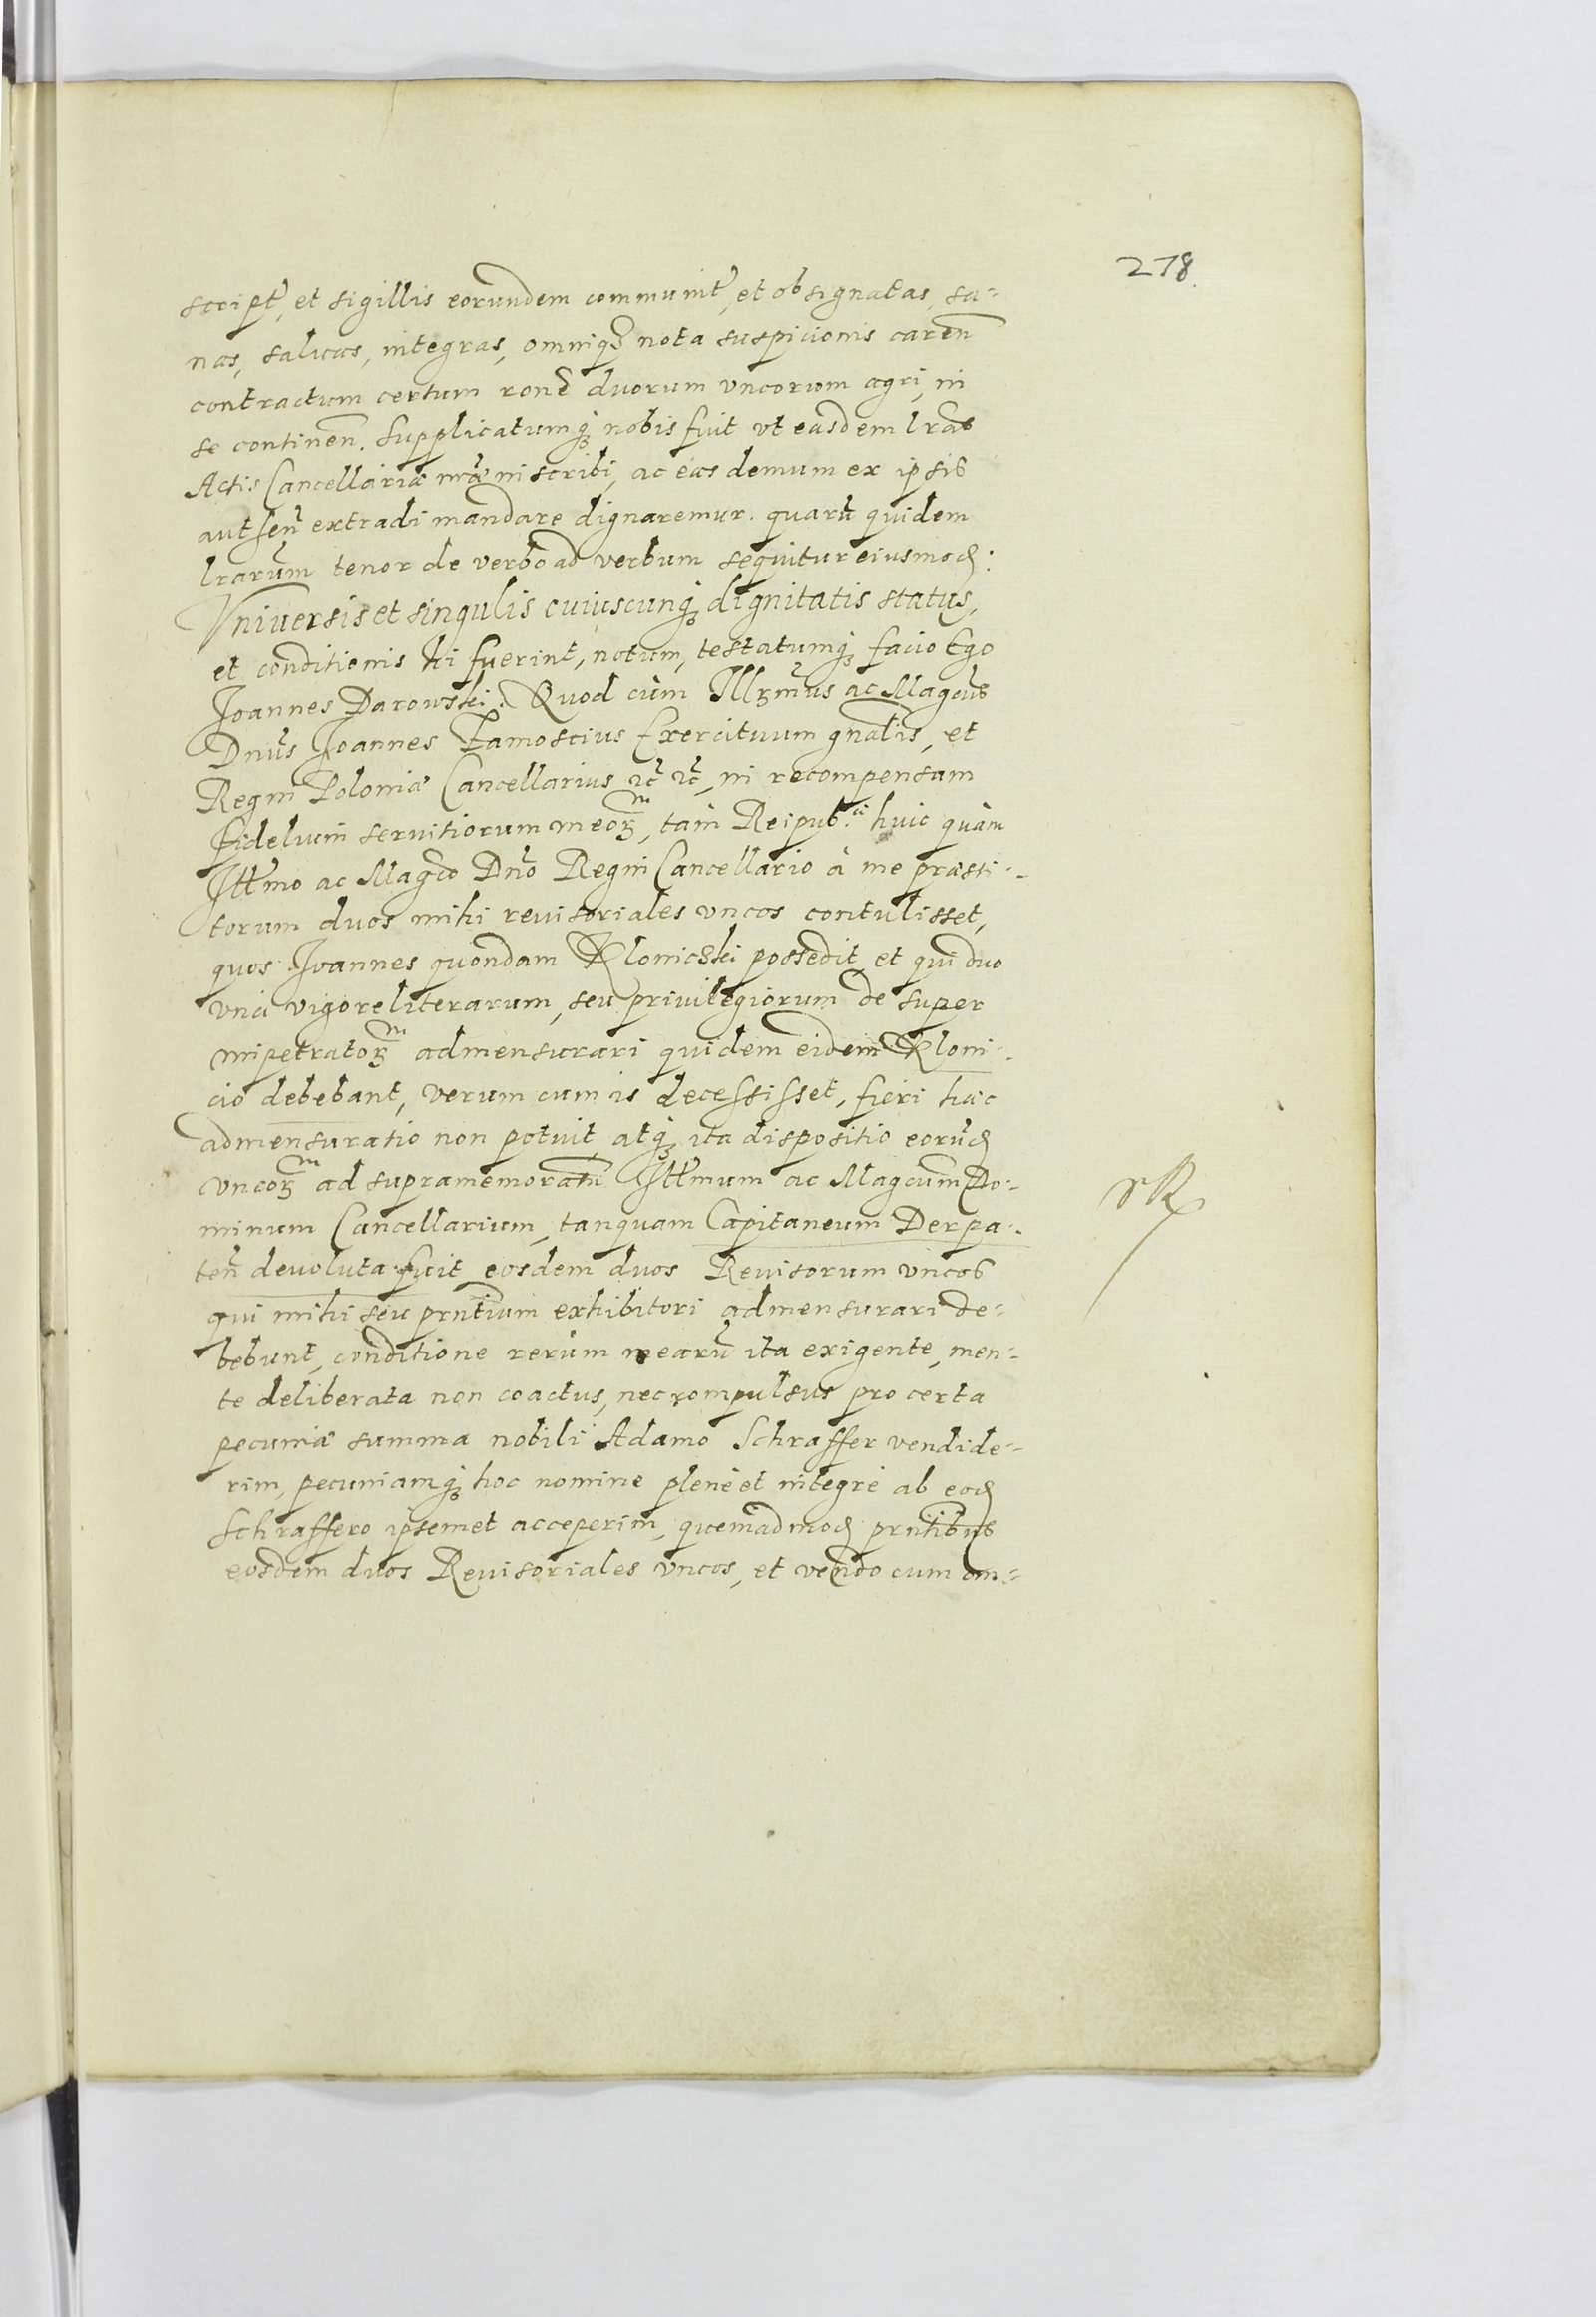 278.
script, et sigillis eorundem communit, et obsignatas, sa-
nas, saluas, integras, omniq; nota suspicionis caren
contractum certum rone duorum vncorum agri, in
se continen. Supplicatumq; nobis fuit vt easdem lras
Actis Cancellariæ nræ inscribi, ac eas demum ex ipsis
autsen extradi mandare dignaremur. quarũ quidem
lrarum tenor de verbo ad verbum sequitur eiusmod:
Vniversis et singulis cuiuscunq; dignitatis status,
et conditionis hi fuerint, notum, testatumq; facio Ego
Joannes Darowski. Quod cùm Illrmus ac Magcus
Dnus Joannes Zamoscius Exercituum gnalis, et
Regni Poloniæ Cancellarius etc etc, in recompensam
fidelium seruitiorum meorum, tàm Reipub.cæ huic quàm
Illmo ac Magco Dno Regni Cancellario à me præsti-
torum duos mihi reuisoriales vncos contulisset,
quos Joannes quondam Klonicski possedit et qui duo
vnci vigore literarum, seu priuilegiorum de super
impetratorum admensurari quidem eidem Kloni-
cio debebant, verum cum is decessisset, fieri hæc
admensuratio non potuit atq; ita dispositio eorũd
vncorum ad supramemoratũ Illmum ac Magcum Do-
minum Cancellarium, tanquam Capitaneum Derpa-
ten deuoluta fuit eosdem duos Reuisorum vncos
qui mihi seu prntium exhibitori admensurari de-
bebunt, conditione rerum mearũ ita exigente, men-
te deliberata non coactus, nec compulsus pro certa
pecuniæ summa nobili Adamo Schraffer vendide-
rim, pecuniamq; hoc nomine plenè et integrè ab eod
Schraffero ipsemet acceperim, quemadmod prntibus
eosdem duos Reuisoriales vncos, et vendo cum om-